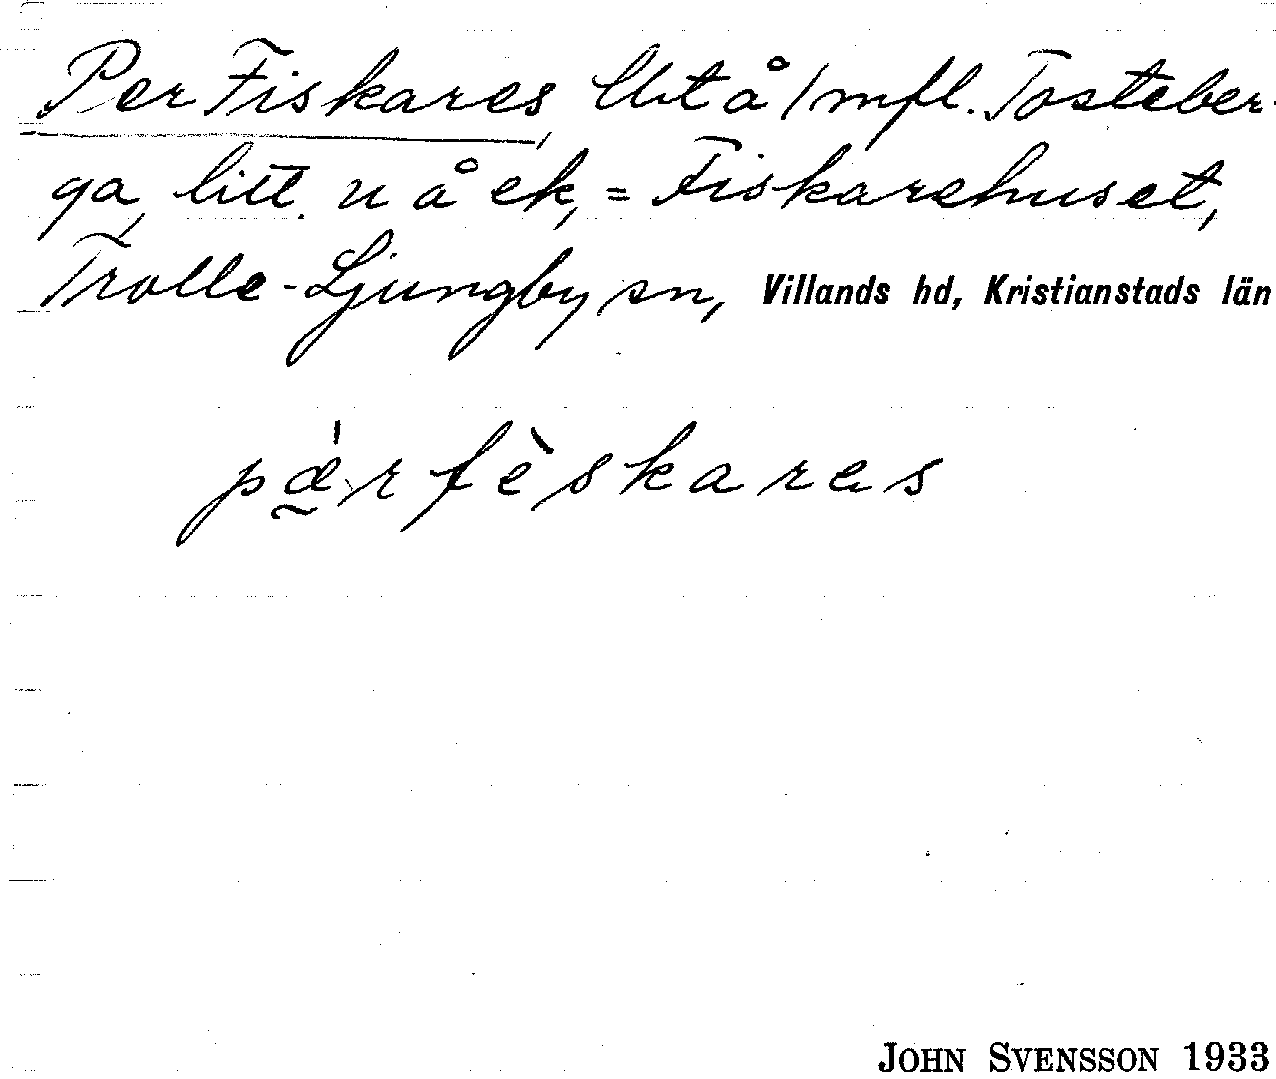 Per Fiskares, lht å 1 mfl. Tosteber-
ga, litt. n å ek, = Fiskarehuset,
Trolle-Ljungby sn, Villands hd, Kristianstads län
pǽ̰r fèskares
JOHN SVENSSON 1933